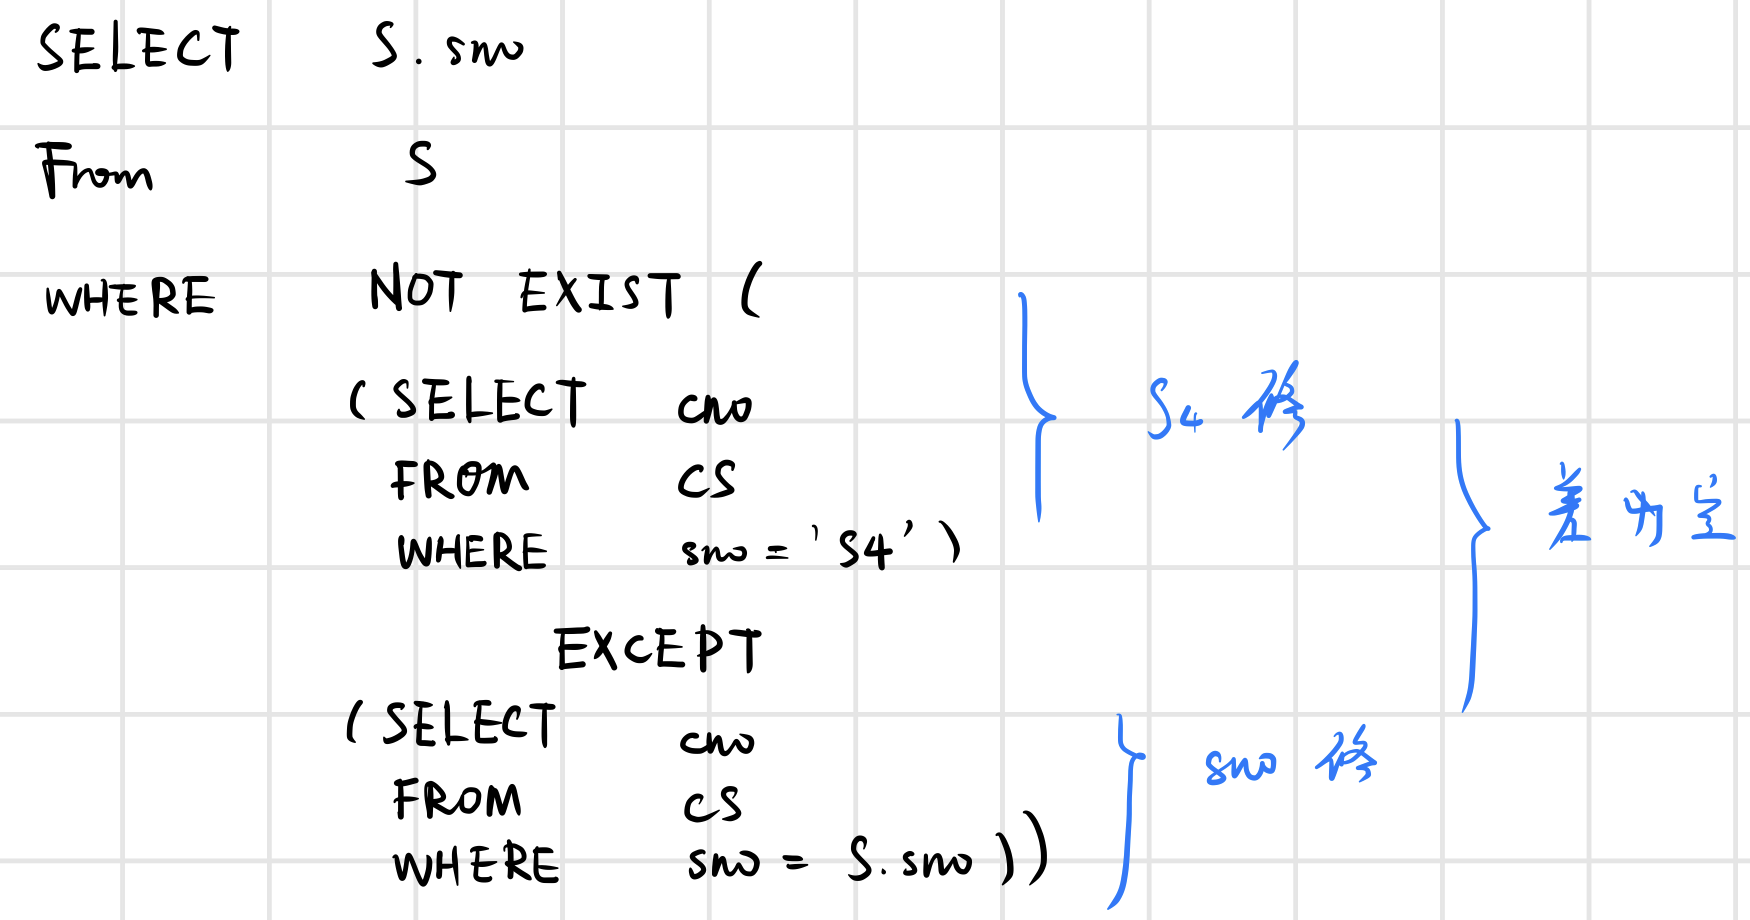 SELECT S.sno
From S
WHERE NOT EXIST (
(SELECT cno
FROM CS
WHERE sno = 'S4')
EXCEPT
(SELECT cno
FROM CS
WHERE sno = S.sno))
S4 修
sno 修
差为空